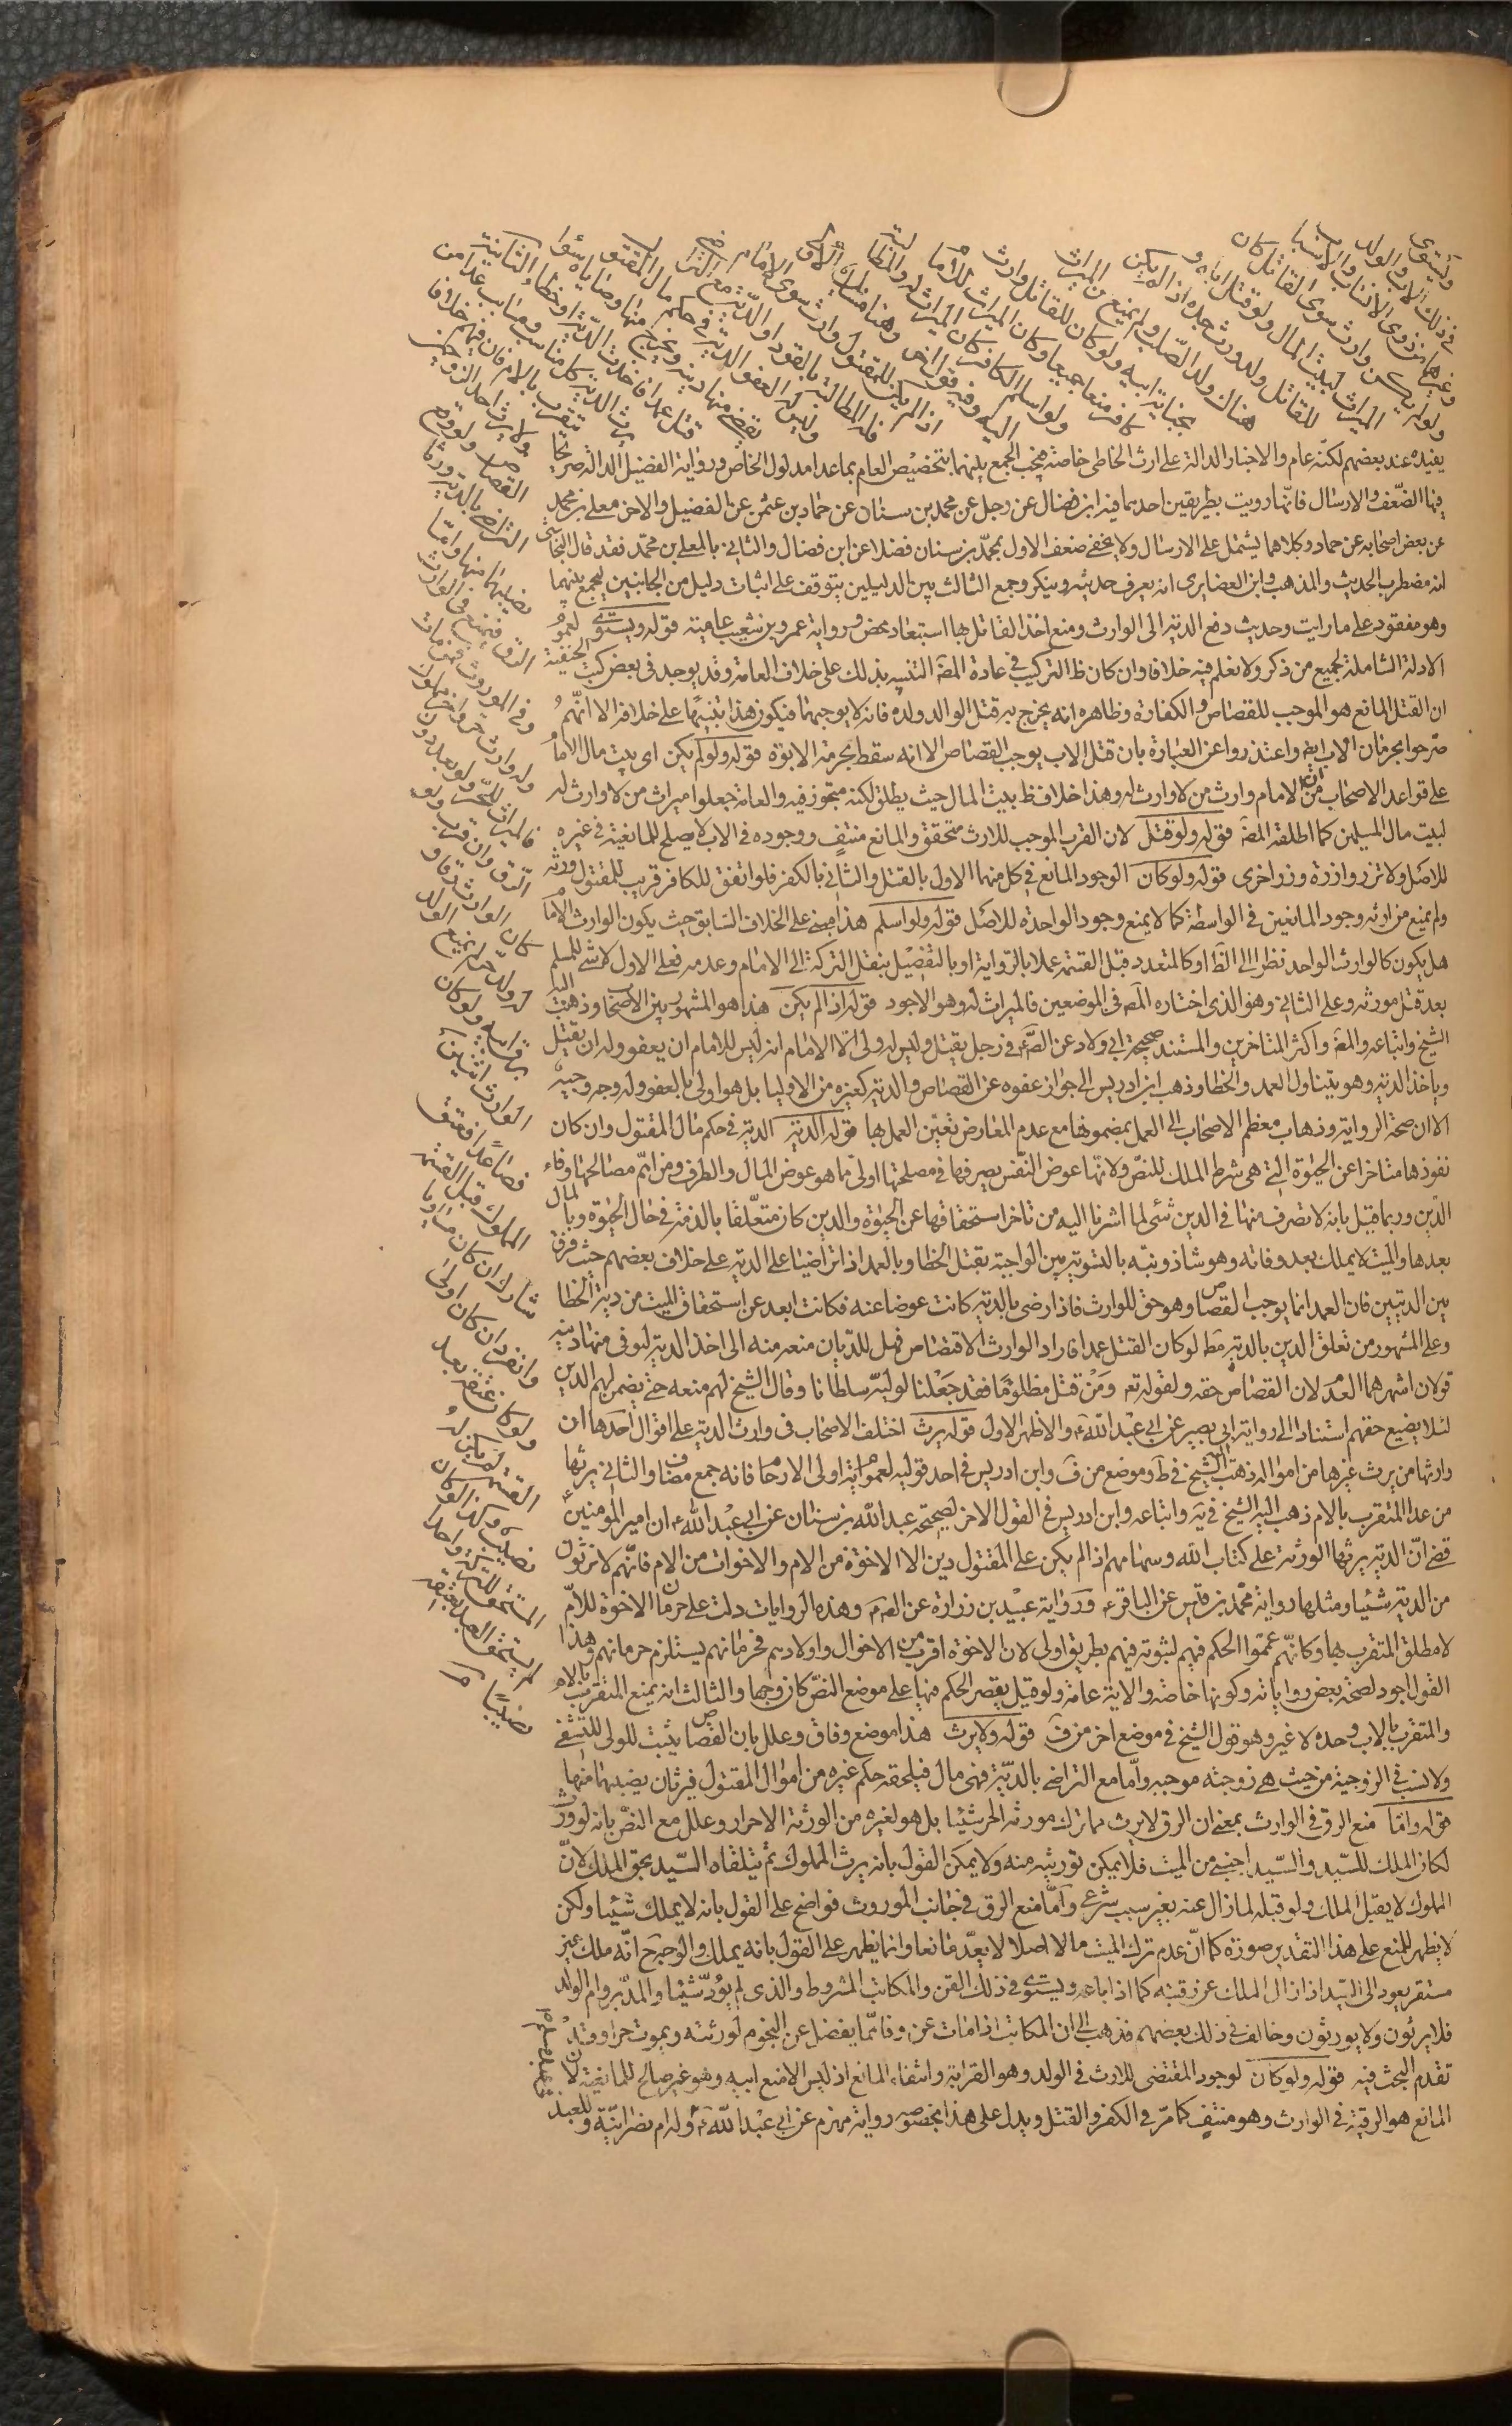 ويستوى
في ذلك الاب والولد
وغيرهما من ذوى الانساب والاسباب
ولو لم يكن وارث سوى القاتل كان
الميراث لبيت المال ولو قتل اباه و
للقاتل ولد ورث جده اذا لم يكن
هناك ولد للصلب ولم يمنع من الميراث
بجناية ابيه ولو كان للقاتل وارث
كافر منعا جميعا وكان الميراث للامام
ولو اسلم الكافر كان الميراث له والمطالبة
اليه وفيه قول اخر وهنا مسائل الاولى
اذا لم يكن للمقتول وارث سوى الامام
فله المطالبة بالقود او الدية مع التراضى
وليس له العفو الدية في حكم مال المقتول
يقضى منها دينه ويخرج منها وصاياه سواء
قتل عمدا فاخذت الدية او خطأ الثانية
يرث الدية كل مناسب ومسابب عدا من
يتقرب بالام فان فيهم خلافا
ولا يرث احد الزوجين
القصاص ولو وقع
التراضى بالدية ورثا
نصيبهما منها واما
الرق فيمنع في الوارث
وفي الموروث فمن مات
وله وارث حر واخر مملوك
فالميراث للحر ولو بعد دون
الرق وان قرب ولو
كان الوارث رقا و
له ولد حر لم يمنع الولد
برق ابيه ولو كان
الوارث اثنين
فصاعدا فعتق
المملوك قبل القسمة
شارك ان كان مساويا
وانفرد ان كان اولى
ولو كان عتقه بعد
القسمة لم يكن له
نصيب وكذا لو كان
المستحق للتركة واحدا
لم يستحق العبد بعتقه
نصيبا
يفيده عند بعضهم لكنه عام والاخبار الدالة على ارث الخاطى خاصة فيجب الجمع بينهما بتخصيص العام بما عدا مدلول الخاص ورواية الفضيل الدالة صريحا
فيها الضعف والارسال فانها رويت بطريقين احدهما فيه ابن فضال عن رجل عن محمد بن سنان عن حماد بن عثمن عن الفضيل والاخر معلى بن محمد
عن بعض اصحابه عن حماد وكلاهما يشتمل على الارسال ولا يخفى ضعف الاول بمحمد بن سنان فضلا عن ابن فضال والثانى بالمعلى بن محمد فقد قال النجاشى
انه مضطرب الحديث والمذهب وابن الغضايرى انه يعرف حديثه وينكر وجمع الثالث بين الدليلين يتوقف على اثبات دليل من الجانبين ليجمع بينهما
وهو مفقود على ما رايت وحديث دفع الدية الى الوارث ومنع اخذ القاتل لها استبعاد محض ورواية عمرو بن شعيب عامية قوله ويستوى لعموم
الادلة الشاملة لجميع من ذكر ولا نعلم فيه خلافا وان كان ظ التركيب في عادة المصَ التنبيه بذلك على خلاف العامة وقد يوجد في بعض كتب الحنفية
ان القتل المانع هو الموجب للقصاص والكفارة وظاهره انه يخرج به قتل الوالد ولده فانه لا يوجبهما فيكون هذا تنبيها على خلافه الا انهم
صرحوا بحرمان الاب ايض واعتذروا عن العبارة بان قتل الاب يوجب القصاص الا انه سقط بحرمة الابوة قوله ولو لم يكن اى بيت مال الامام
على قواعد الاصحاب من ان الامام وارث من لا وارث له وهذا خلاف ظ بيت المال حيث يطلق لكنه متجوز فيه والعامة جعلوا ميراث من لا وارث له
لبيت مال المسلمين كما اطلقه المصَ قوله ولو قتل لان القرب الموجب للارث متحقق والمانع منتف ووجوده في الاب لا يصلح للمانعية في غيره
للاصل ولا تزر وازرة وزر اخرى قوله ولو كان الوجود المانع في كل منهما الاول بالقتل والثانى بالكفر فلو اتفق للكافر قريب للمقتول ورثه
ولم يمنع من ارثه وجود المانعين في الواسطة كما لا يمنع وجود الواحدة للاصل قوله ولو اسلم هذا مبنى على الخلاف السابق حيث يكون الوارث الامام
هل يكون كالوارث الواحد نظرا الى الظ او كالمتعدد قبل القسمة عملا بالرواية او بالتفصيل بنقل التركة الى الامام وعدمه فعلى الاول لا شئ للمسلم
بعد قتل مورثه وعلى الثانى وهو الذى اختاره المصَ في الموضعين فالميراث له وهو الاجود قوله اذا لم يكن هذا هو المشهور بين الاصحاب وذهب اليه
الشيخ واتباعه والمصَ واكثر المتاخرين والمستند صحيحة ابى ولاد عن الصَ في رجل يقتل وليس له ولى الا الامام انه ليس للامام ان يعفو وله ان يقتل
وياخذ الدية وهو يتناول العمد والخطا وذهب ابن ادريس الى جواز عفوه عن القصاص والدية كغيره من الاوليا بل هو اولى بالعفو وله وجه وجيه
الا ان صحة الرواية وذهاب معظم الاصحاب الى العمل بمضمونها مع عدم المعارض تعين العمل بها قوله الدية الدية في حكم مال المقتول وان كان
نفوذها متاخرا عن الحيوة التى هى شرط الملك للنص ولانها عوض النفس يصرفها في مصلحتها اولى مما هو عوض المال والطرف ومن اتم مصالحها وفاء
الدين وربما قيل بانه لا تصرف منها في الدين شئى لما اشرنا اليه من تاخر استحقاقها عن الحيوة والدين كان متعلقا بالذمة في حال الحيوة وبالمال
بعدها والميت لا يملك بعد وفاته وهو شاذ ونبه بالتسوية بين الواجبة بقتل الخطا وبالعمد اذا تراضيا على الدية على خلاف بعضهم حيث فرق
بين الديتين فان العمد انما يوجب القصاص وهو حق للوارث فاذا رضى بالدية كانت عوضا عنه فكانت ابعد عن استحقاق الميت من دية الخطا
وعلى المشهور من تعلق الدين بالدية مط لو كان القتل عمدا فاراد الوارث الاقتصاص فهل للديان منعه منه الى اخذ الدية ليوفى منها دينه
قولان اشهرهما العدم لان القصاص حقه ولقوله تع ومن قتل مظلوما فقد جعلنا لوليه سلطانا وقال الشيخ لهم منعه حتى يضمن لهم الدين
لئلا يضيع حقهم استنادا الى رواية ابى بصير عن ابى عبد الله ع والاظهر الاول قوله يرث اختلف الاصحاب في وارث الدية على اقوال احدها ان
وارثها من يرث غيرها من امواله ذهب اليه الشيخ في ط وموضع من ف وابن ادريس في احد قوليه لعموم اية اولى الارحام فانه جمع مضاف والثانى يرثها
من عدا المتقرب بالام ذهب اليه الشيخ في يه واتباعه وابن ادريس في القول الاخر لصحيحة عبد الله بن سنان عن ابى عبد الله ع ان امير المومنين ع
قضى ان الدية يرثها الورثة على كتاب الله وسهامهم اذا لم يكن على المقتول دين الا الاخوة من الام والاخوات من الام فانهم لا يرثون
من الدية شيئا ومثلها رواية محمد بن قيس عن الباقر ع ورواية عبيد بن زرارة عن الصَ ع وهذه الروايات دلت على حرمان الاخوة للام
لا مطلق المتقرب بها وكانهم عمموا الحكم فيهم لثبوته فيهم بطريق اولى لان الاخوة اقرب من الاخوال واولادهم فحرمانهم يستلزم حرمانهم وهذا
القول اجود لصحة بعض رواياته وكونها خاصة والاية عامة ولو قيل بقصر الحكم فيها على موضع النص كان وجها والثالث انه يمنع المتقرب بالام
والمتقرب بالاب وحده لا غير وهو قول الشيخ في موضع اخر من ف قوله ولا يرث هذا موضع وفاق وعلل بان القصاص يثبت للولى للتشفى
ولا نسب في الزوجية من حيث هى زوجته موجبه واما مع التراضى بالدية فهى مال فيلحقه حكم غيره من اموال المقتول فيرثان نصيبهما منها
قوله واما منع الرق في الوارث بمعنى ان الرق لا يرث مما ترك مورثه الحر شيئا بل هو لغيره من الورثة الاحرار وعلل مع النص بانه لو ورث
لكان الملك للسيد والسيد اجنبى من الميت فلا يمكن توريثه منه ولا يمكن القول بانه يرث المملوك ثم يتلقاه السيد بحق الملك لان
المملوك لا يقبل الملك ولو قبله لما زال عنه بغير سبب شرعى واما منع الرق في جانب الموروث فواضح على القول بانه لا يملك شيئا ولكن
لا يظهر للمنع على هذا التقدير صورة كما ان عدم ترك الميت مالا اصلا لا يعد مانعا وانما يظهر على القول بانه يملك والوجه ح انه ملك غير
مستقر يعود الى السيد اذا زال الملك عن رقبته كما اذا باعه ويستوى في ذلك القن والمكاتب المشروط والذى لم يؤد شيئا والمدبر وام الولد
فلا يرثون ولا يورثون وخالف في ذلك بعضهم فذهب الى ان المكاتب اذا مات عن وفا مما يفضل عن النجوم لورثته ويموت حرا وقد
تقدم البحث فيه قوله ولو كان لوجود المقتضى للارث في الولد وهو القرابة وانتفاء المانع اذ ليس الا منع ابيه وهو غير صالح للمانعية لان
المانع هو الرقية في الوارث وهو منتف كما مر في الكفر والقتل ويدل على هذا بخصوصه رواية مهزم عن ابى عبد الله ع وله ام نصرانية وللعبد